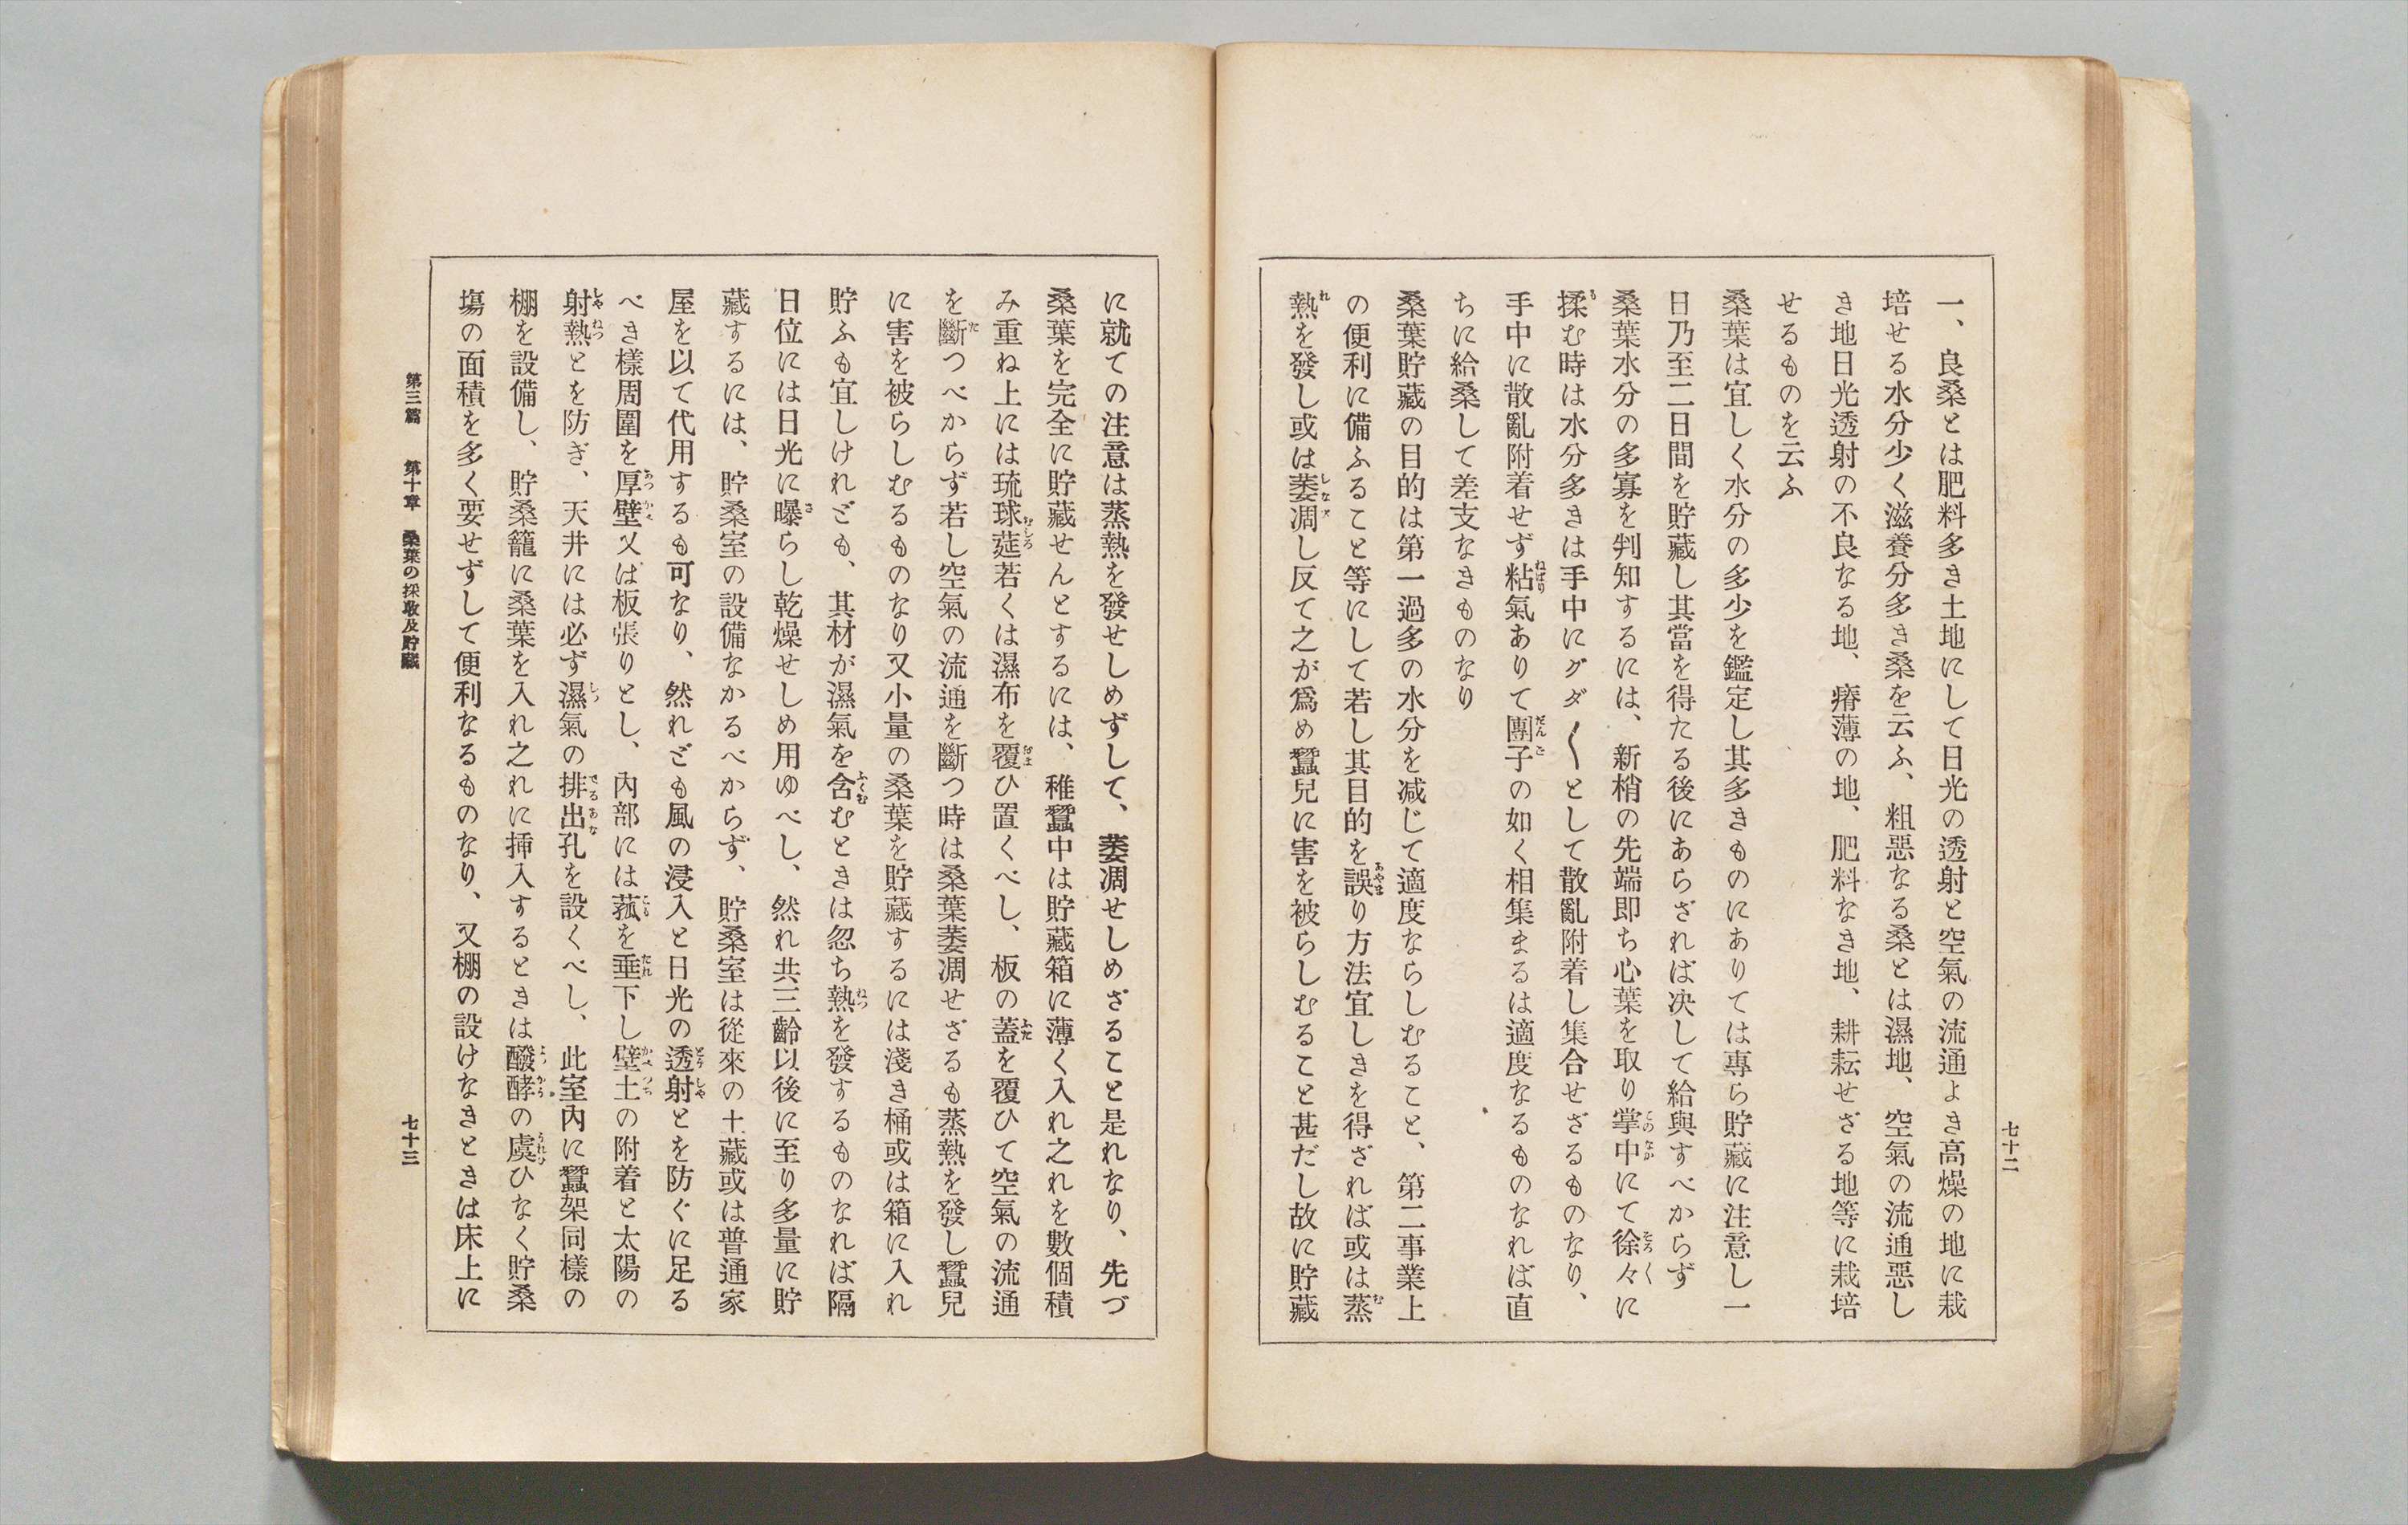 七十二
一、良桑とは肥料多き土地にして日光の透射と空氣の流通よき高燥の地に栽
培せる水分少く滋養分多き桑を云ふ、粗惡なる桑とは濕地、空氣の流通惡し
き地日光透射の不良なる地、瘠薄の地、肥料なき地、耕耘せざる地等に栽培
せるものを云ふ
桑葉は宜しく水分の多少を鑑定し其多きものにありては專ら貯藏に注意し一
日乃至二日間を貯藏し其當を得たる後にあらざれば决して給與すべからず
桑葉水分の多寡を判知するには、新梢の先端即ち心葉を取り掌中にて徐々に
揉む時は水分多きは手中にグダ〱として散亂附着し集合せざるものなり、
手中に散亂附着せず粘氣ありて團子の如く相集まるは適度なるものなれば直
ちに給桑して差支なきものなり
桑葉貯藏の目的は第一過多の水分を減じて適度ならしむること、第二事業上
の便利に備ふること等にして若し其目的を誤り方法宜しきを得ざれば或は蒸
熱を發し或は萎凋し反て之が爲め蠶兒に害を被らしむること甚だし故に貯藏
に就ての注意は蒸熱を發せしめずして、萎凋せしめざること是れなり、先づ
桑葉を完全に貯藏せんとするには、稚蠶中は貯藏箱に薄く入れ之れを數個積
み重ね上には琉球莚若くは濕布を覆ひ置くべし、板の蓋を覆ひて空氣の流通
を斷つべからず若し空氣の流通を斷つ時は桑葉萎凋せざるも蒸熱を發し蠶兒
に害を被らしむるものなり又小量の桑葉を貯藏するには淺き桶或は箱に入れ
貯ふも宜しけれども、其材が濕氣を含むときは忽ち熱を發するものなれば隔
日位には日光に曝らし乾燥せしめ用ゆべし、然れ共三齡以後に至り多量に貯
藏するには、貯桑室の設備なかるべからず、貯桑室は從來の土藏或は普通家
屋を以て代用するも可なり、然れども風の浸入と日光の透射とを防ぐに足る
べき樣周圍を厚壁又は板張りとし、內部には菰を垂下し壁土の附着と太陽の
射熱とを防ぎ、天井には必ず濕氣の排出孔を設くべし、此室內に蠶架同樣の
棚を設備し、貯桑籠に桑葉を入れ之れに挿入するときは醱酵の虞ひなく貯桑
塲の面積を多く要せずして便利なるものなり、又棚の設けなきときは床上に
第三篇　第十章　桑葉の採收及貯藏
七十三